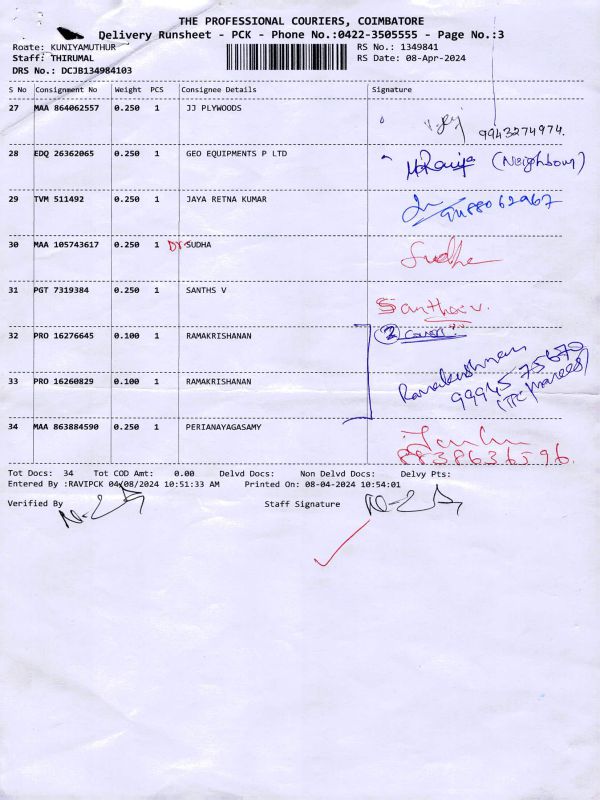 THE PROFESSIONAL COURIERS, COIMBATORE
Delivery Runsheet - PCK - Phone No.:0422-3505555 - Page No.:3
Route: KUNIYAMUTHUR
RS No.: 1349841
Staff: THIRUMAL
RS Date: 08-Apr-2024
DRS No.: DCJB134984103
S No Consignment No Weight PCS Consignee Details Signature
27 MAA 864062557 0.250 1 JJ PLYWOODS
9943274974.
28 EDQ 26362065 0.250 1 GEO EQUIPMENTS P LTD
(Neighbour)
29 TVM 511492 0.250 1 JAYA RETNA KUMAR
9488062967
30 MAA 105743617 0.250 1 Dr. SUDHA Sudha
31 PGT 7319384 0.250 1 SANTHS V
Santhosh v.
32 PRO 16276645 0.100 1 RAMAKRISHANAN
2 Cover
33 PRO 16260829 0.100 1 RAMAKRISHANAN
Ramakrishnan
99945 75670
34 MAA 863884590 0.250 1 PERIANAYAGASAMY
8838636596.
Tot Docs: 34 Tot COD Amt: 0.00 Delvd Docs: Non Delvd Docs: Delvy Pts:
Entered By :RAVIPCK 04/08/2024 10:51:33 AM Printed On: 08-04-2024 10:54:01
Verified By Staff Signature